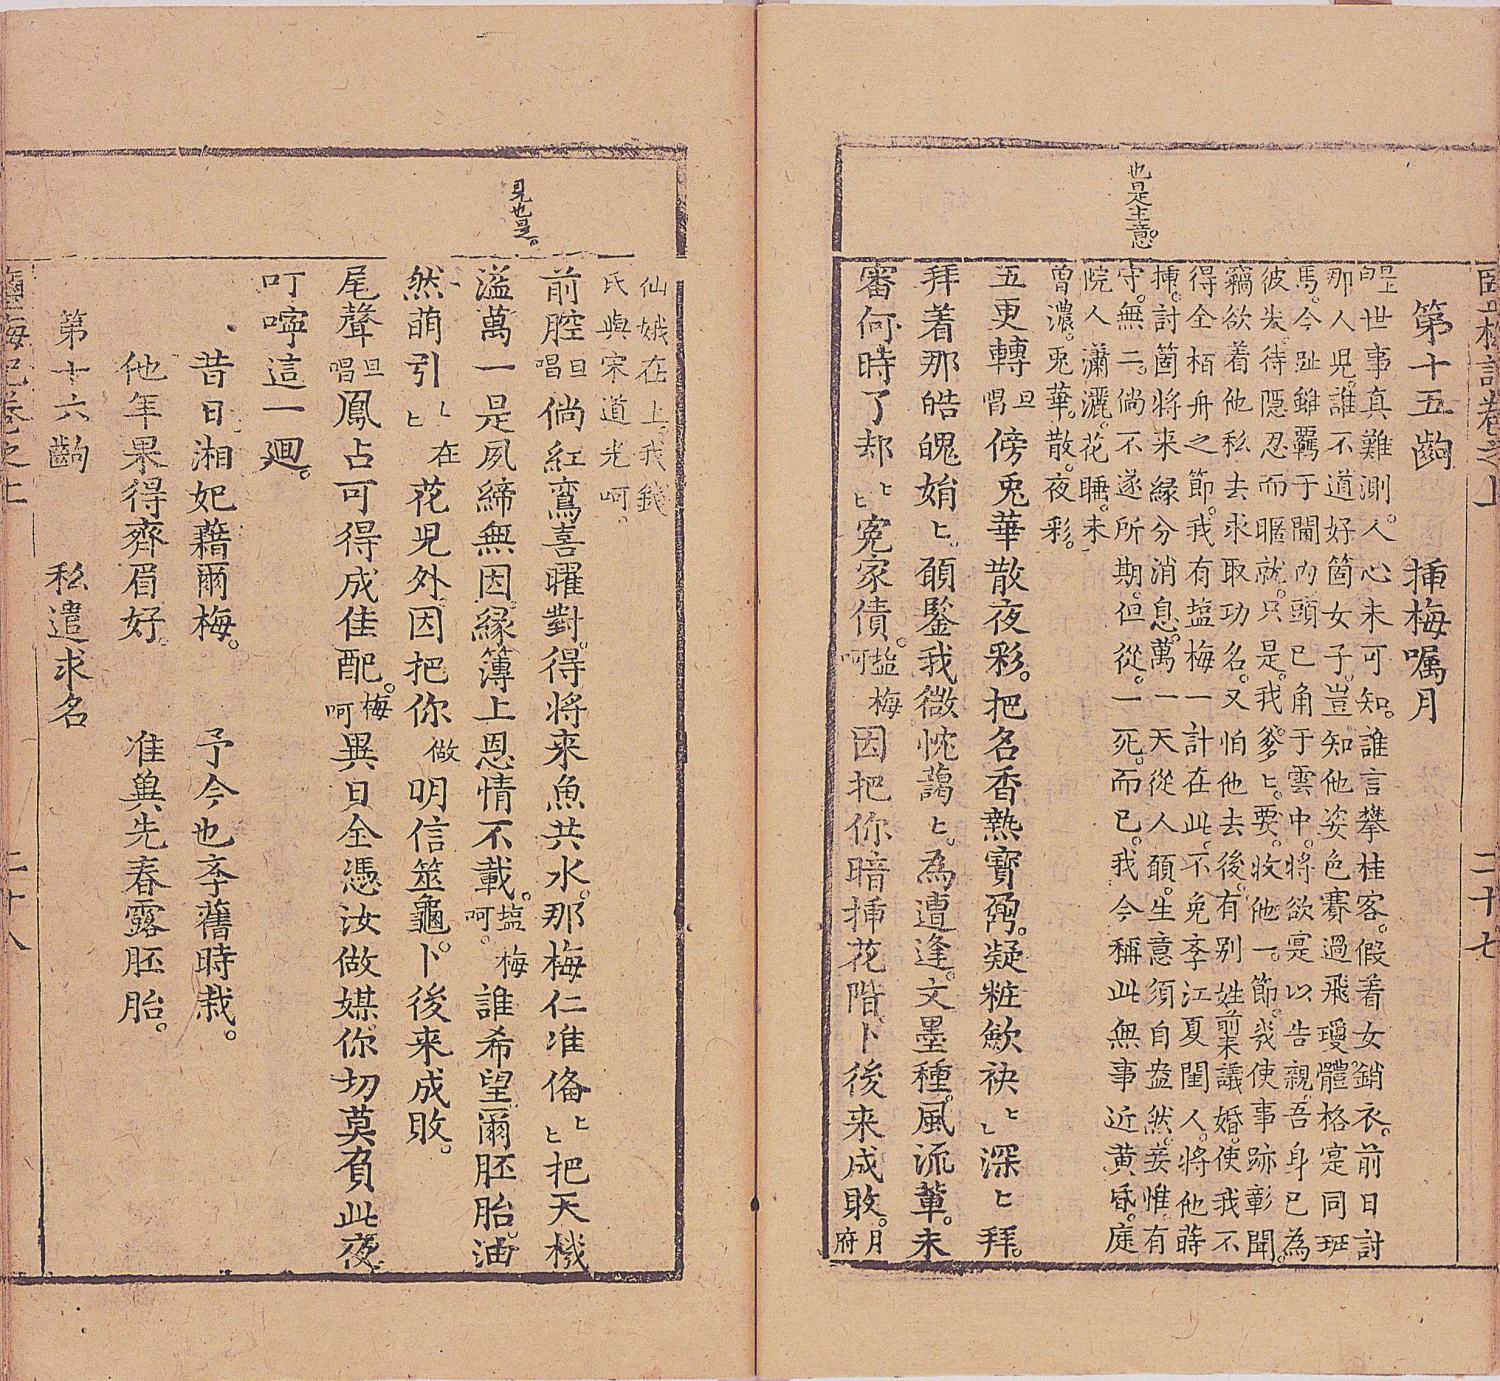 也是生意。
第十五齣　挿梅嘱月
世事真難測。人心未可知。誰言攀桂客。假着女銷衣。前日討
那人児。誰不道好箇女子。豈知他姿色賽過飛瓊體格寔同班
馬。今趾雖羈于閫內頭已角于雲中。將欲寔以告親。吾身已為
彼発。待隱忍而暱就。只是。我爹匕。要。收他一。節。我使事跡彰聞。
竊欲着他私去求取功名。又怕他去後。有別姓前来議婚。使我不
得全栢舟之節。我有塩梅一計在此。不免李江夏閨人。將他蒔
揷。討箇將来緣分消息。萬一天從人願。生意須自盎然。妾惟有
守。無二。倘不遂所期。但從。一死。而已。我今稱此無事近黄昏。庭
院人瀟灑。花睡。未
曾濃。兎華。散。夜彩。
五更轉唱旦傍兎華散夜彩。把名香熱寶鼐。疑粧歛袂匕深匕拜。
拜着那皓魄娟匕。願鑒我微忱藹匕。為遭逢。文墨種。風流輩。未
審何時了却匕冤家債。塩梅呵因把你暗挿花階。卜後来成敗。月府
二十七
見也是。
仙娥在上。我錢
氏與宋道光呵。
前腔旦唱倘紅鸞喜曜對。得将来魚共水。那梅仁准俻匕把天機
溢萬一是夙締無因。緣簿上恩情不載。塩梅呵。誰希望爾胚胎。油
然萌引匕在花児外因把你做明信筮龜。卜後来成敗。
尾聲旦唱鳳占可得成佳配。梅呵異日全憑汝做媒。你切莫負此夜
叮嚀這一廻。
昔日湘妃藉爾梅。　予今也李舊時栽。
他年果得齊眉好。　准與先春露胚胎。
第十六齣　私遣求名
二十八